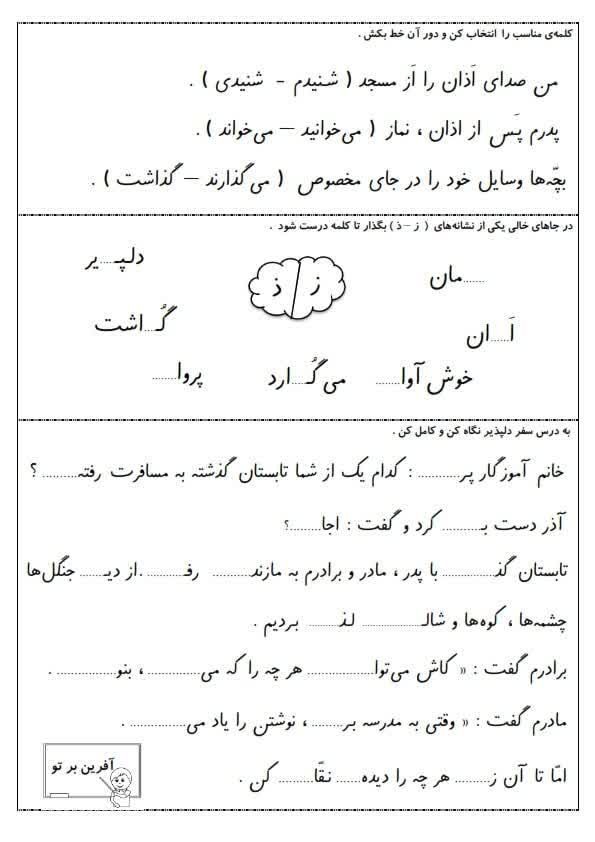 کلمه‌ی مناسب را انتخاب کن و دور آن خط بکش .
من صدای اَذان را اَز مسجد ( شنیدم – شنیدی ) .
پدرم پَس از اذان ، نماز ( می‌خوانید – می‌خواند ) .
بچّه‌ها وسایل خود را در جای مخصوص ( می‌گذارند – گذاشت ) .
در جاهای خالی یکی از نشانه‌های ( ز – ذ ) بگذار تا کلمه درست شود .
.......مان ز ذ دلپـ....یر
اَ......ان گُـ....اشت
خوش آوا........ می‌گُـ....ارد پروا........
به درس سفر دلپذیر نگاه کن و کامل کن .
خانم آموزگار پر............ : کدام یک از شما تابستان گذشته به مسافرت رفته.......... ؟
آذر دست بـ.......... کرد و گفت : اجا.........؟
تابستان گذ............... با پدر ، مادر و برادرم به مازند........... رفـ......... .از دیـ....... جنگل‌ها
چشمه‌ها ، کوه‌ها و شالـ................. لذ......... بردیم .
برادرم گفت : « کاش می‌توا................... هر چه را که می............... ، بنو................. .
مادرم گفت : « وقتی به مدرسه بر......... ، نوشتن را یاد می............... .
امّا تا آن ز.......... هر چه را دیده....... نقّا.......... کن .
آفرین بر تو